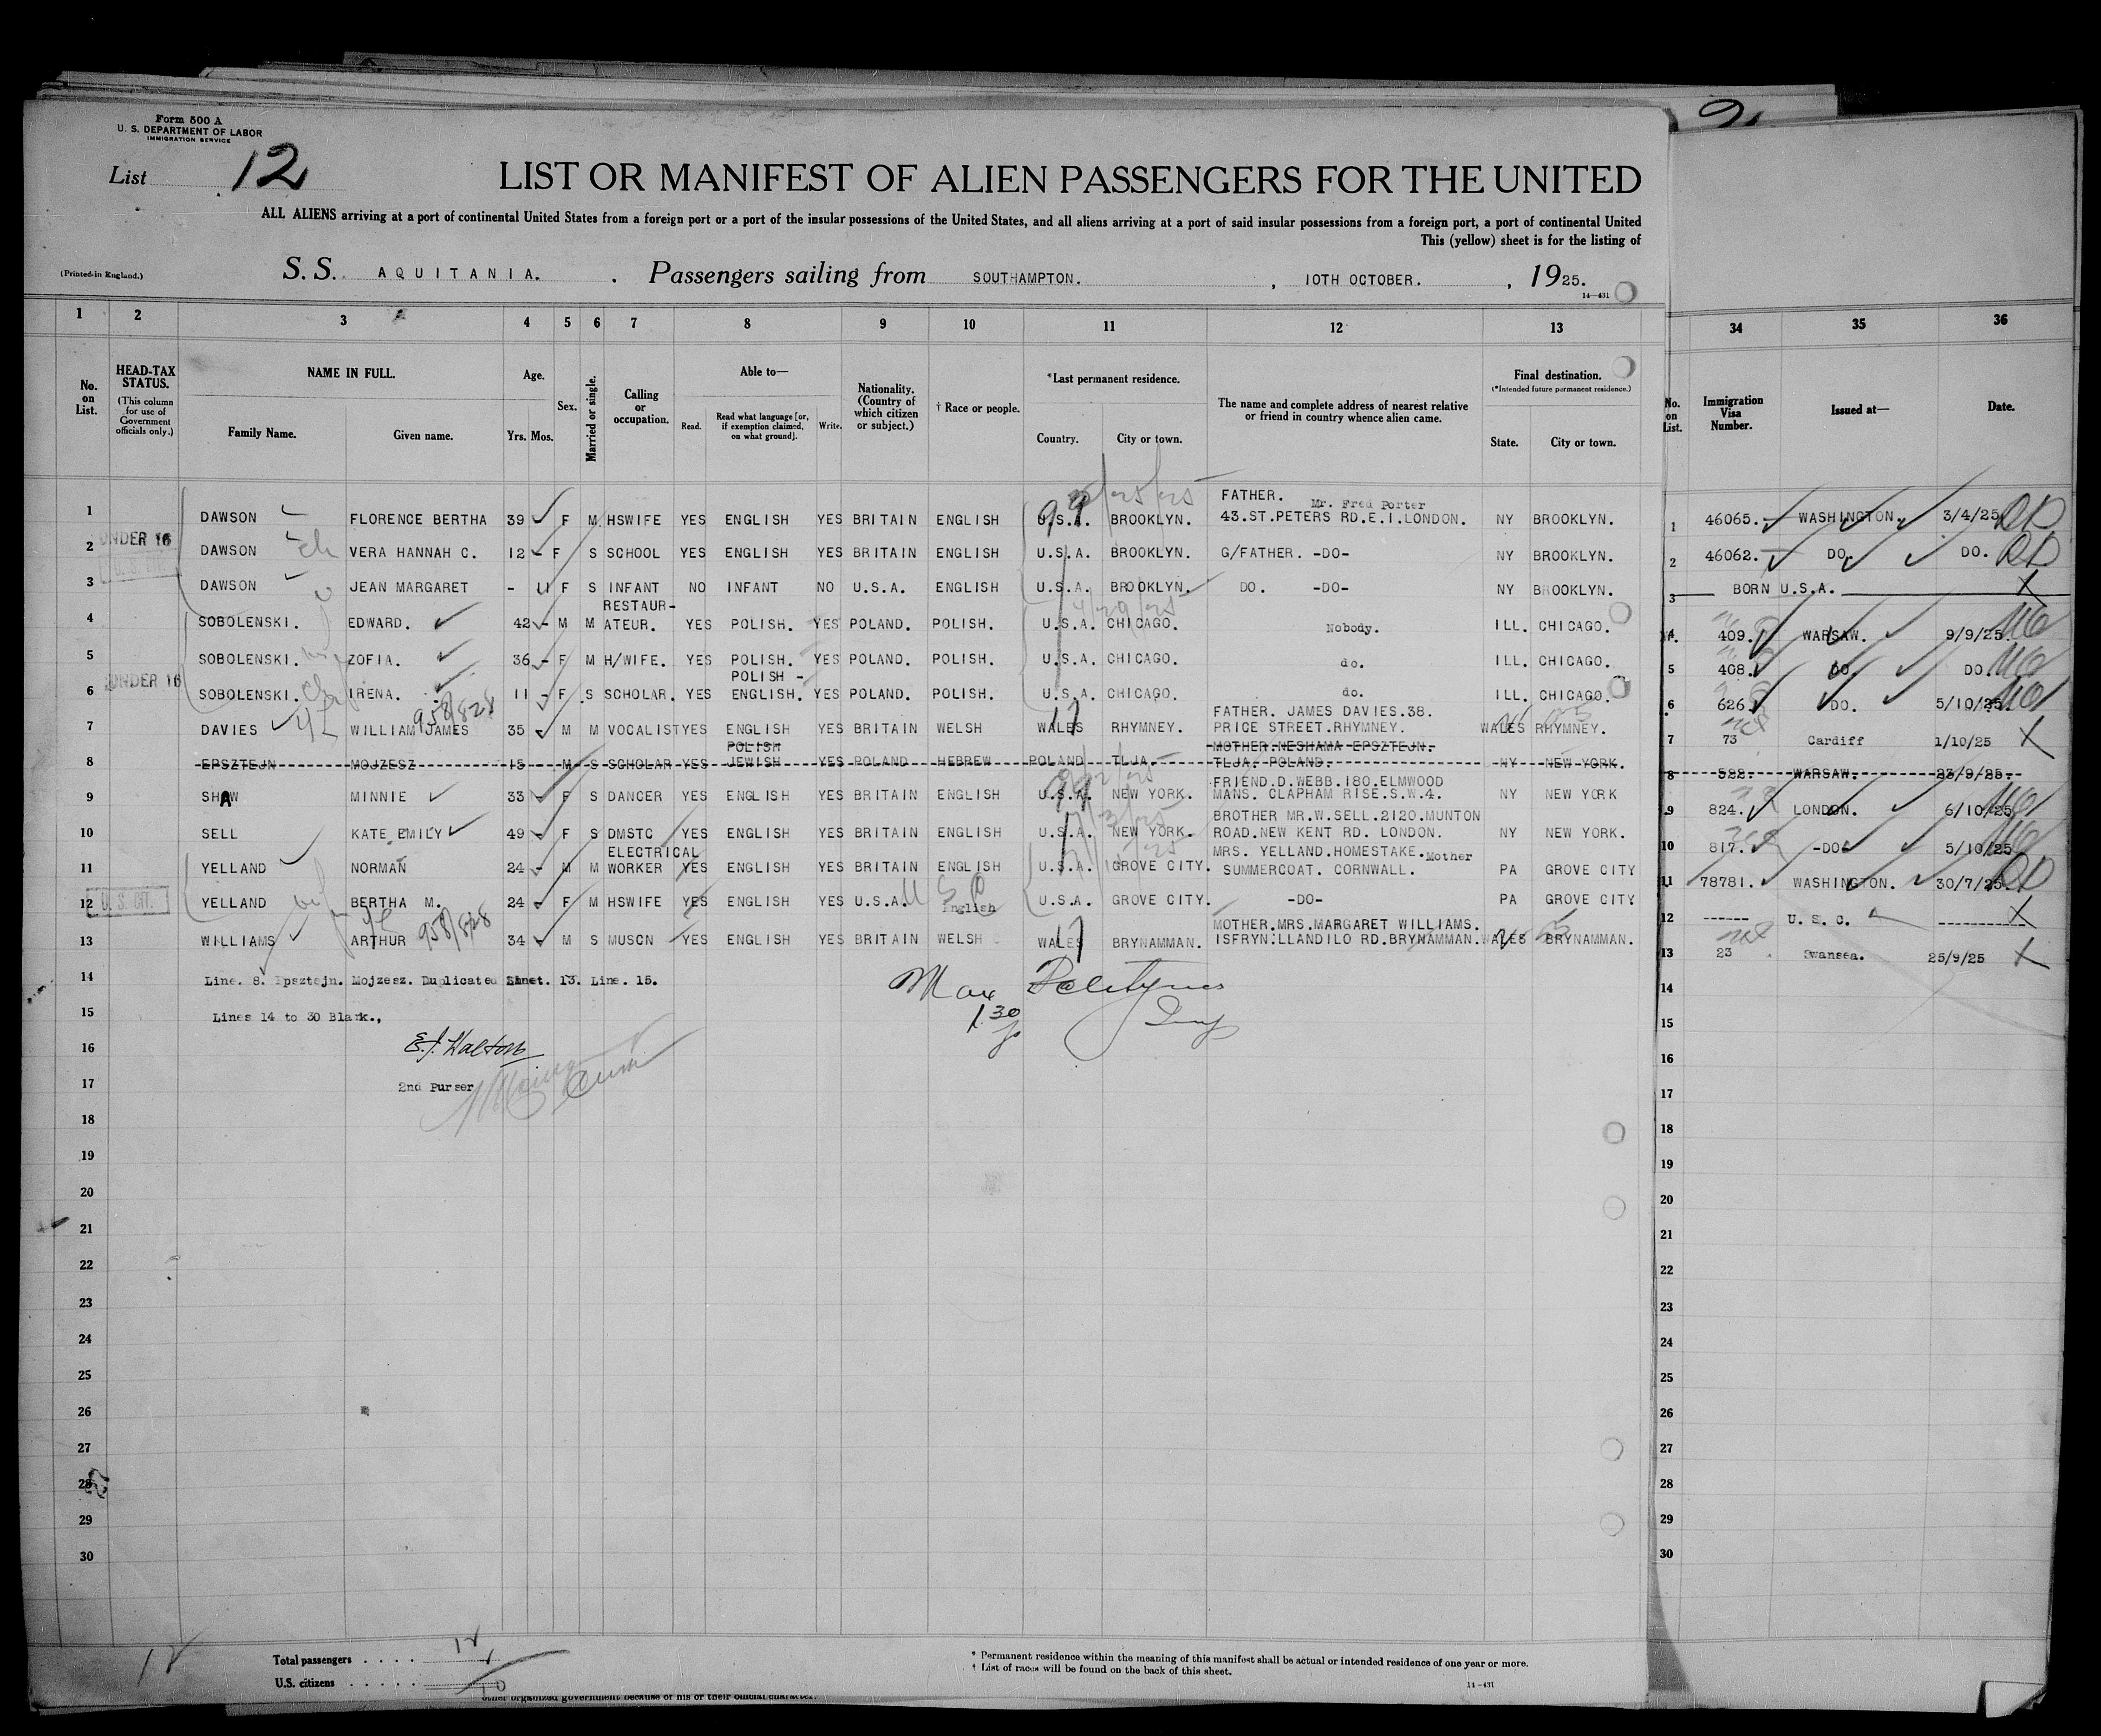 Form 500 A
U. S. DEPARTMENT OF LABOR
IMMIGRATION SERVICE
List 12
LIST OR MANIFEST OF ALIEN PASSENGERS FOR THE UNITED
ALL ALIENS arriving at a port of continental United States from a foreign port or a port of the insular possessions of the United States, and all aliens arriving at a port of said insular possessions from a foreign port, a port of continental United
This (yellow) sheet is for the listing of
(Printed in England.)
S.S. AQUITANIA. Passengers sailing from SOUTHAMPTON. , 10TH OCTOBER. , 1925.
14—431
1 2 3 4 5 6 7 8 9 10 11 12 13 34 35 36
No. on List.
HEAD-TAX STATUS.
(This column for use of Government officials only.)
NAME IN FULL.
Family Name. Given name.
Age.
Yrs. Mos.
Sex.
Married or single.
Calling or occupation.
Able to—
Read. Read what language [or, if exemption claimed, on what ground]. Write.
Nationality. (Country of which citizen or subject.)
† Race or people.
*Last permanent residence.
Country. City or town.
The name and complete address of nearest relative or friend in country whence alien came.
Final destination.
(*Intended future permanent residence.)
State. City or town.
No. on List.
Immigration Visa Number.
Issued at—
Date.
FATHER. Mr. Fred Porter
1 DAWSON FLORENCE BERTHA 39 F M HSWIFE YES ENGLISH YES BRITAIN ENGLISH U.S.A. BROOKLYN. 43.ST.PETERS RD.E.I.LONDON. NY BROOKLYN. 1 46065. WASHINGTON. 3/4/25
2 UNDER 16 DAWSON VERA HANNAH C. 12 - F S SCHOOL YES ENGLISH YES BRITAIN ENGLISH U.S.A. BROOKLYN. G/FATHER. -DO- NY BROOKLYN. 2 46062. DO. DO.
3 DAWSON JEAN MARGARET - 11 F S INFANT NO INFANT NO U.S.A. ENGLISH U.S.A. BROOKLYN. DO. -DO- NY BROOKLYN. 3 BORN U.S.A.
RESTAUR-
4 SOBOLENSKI. EDWARD. 42 - M M ATEUR. YES POLISH. YES POLAND. POLISH. U.S.A. CHICAGO. Nobody. ILL. CHICAGO. 4 409. WARSAW. 9/9/25.
5 SOBOLENSKI. ZOFIA. 36 - F M H/WIFE. YES POLISH. YES POLAND. POLISH. U.S.A. CHICAGO. do. ILL. CHICAGO. 5 408. DO. DO.
POLISH -
6 UNDER 16 SOBOLENSKI. IRENA. 11 - F S SCHOLAR. YES ENGLISH. YES POLAND. POLISH. U.S.A. CHICAGO. do. ILL. CHICAGO. 6 626. DO. 5/10/25
958/828
FATHER. JAMES DAVIES.38.
7 DAVIES WILLIAM JAMES 35 M M VOCALIST YES ENGLISH YES BRITAIN WELSH WALES RHYMNEY. PRICE STREET.RHYMNEY. WALES RHYMNEY. 7 73 Cardiff 1/10/25
POLISH MOTHER.NESHAMA EPSZTEJN.
8 EPSZTEJN MOJZESZ 15 M S SCHOLAR YES JEWISH YES POLAND HEBREW POLAND TLJA. TLJA. POLAND. NY NEW YORK. 8 522. WARSAW. 23/9/25.
FRIEND.D.WEBB.180.ELMWOOD
9 SHAW MINNIE 33 F S DANCER YES ENGLISH YES BRITAIN ENGLISH U.S.A. NEW YORK. MANS. CLAPHAM RISE.S.W.4. NY NEW YORK 9 824. LONDON. 6/10/25
BROTHER MR.W.SELL.2120.MUNTON
10 SELL KATE EMILY 49 F S DMSTC YES ENGLISH YES BRITAIN ENGLISH U.S.A. NEW YORK. ROAD.NEW KENT RD. LONDON. NY NEW YORK. 10 817. -DO- 5/10/25
ELECTRICAL MRS. YELLAND.HOMESTAKE. Mother
11 YELLAND NORMAN 24 - M M WORKER YES ENGLISH YES BRITAIN ENGLISH U.S.A. GROVE CITY. SUMMERCOAT. CORNWALL. PA GROVE CITY 11 78781. WASHINGTON. 30/7/25
12 U.S. CIT. YELLAND BERTHA M. 24 F M HSWIFE YES ENGLISH YES U.S.A. English U.S.A. GROVE CITY. -DO- PA GROVE CITY 12 ------ U. S. C. ---------
958/828
MOTHER.MRS.MARGARET WILLIAMS.
13 WILLIAMS ARTHUR 34 M S MUSCN YES ENGLISH YES BRITAIN WELSH WALES BRYNAMMAN. ISFRYN:LLANDILO RD.BRYNAMMAN. WALES BRYNAMMAN. 13 23 Swansea. 25/9/25
14 Line. 8. Epsztejn. Mojzesz. Duplicated Sheet. 13. Line. 15. 14
15 Lines 14 to 30 Blank., 1.30 15
16 E.J. Walton 16
17 2nd Purser 17
18 18
19 19
20 20
21 21
22 22
23 23
24 24
25 25
26 26
27 27
28 28
29 29
30 30
12
Total passengers . . . . 12
U.S. citizens . . . . .
* Permanent residence within the meaning of this manifest shall be actual or intended residence of one year or more.
† List of races will be found on the back of this sheet.
14-431
other organized government because of his or their official character.